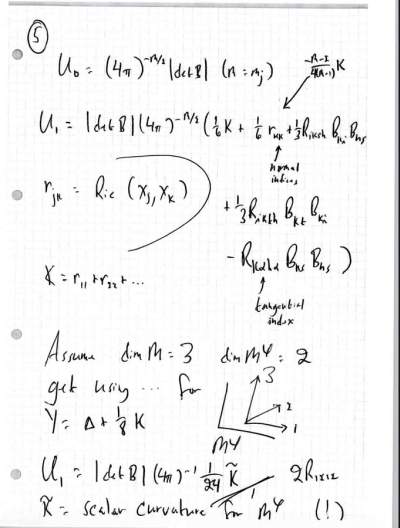 5
U₀ = (4π)^{-n/2} |det B| (n = n_j)
\frac{-n-2}{4(n-1)} K
U₁ = |det B| (4π)^{-n/2} ( \frac{1}{6} K + \frac{1}{6} r_{kk} + \frac{1}{3} R_{iksh} B_{ki} B_{hs}
normal
indices
r_{jk} = Ric (X_j, X_k)
+ \frac{1}{3} R_{ikth} B_{kt} B_{hi}
- R_{kαhα} B_{ks} B_{hs} )
K = r₁₁ + r₂₂ + ...
tangential
index
Assume dim M = 3 dim M^φ = 2
get using ... for
3
2
1
Y = Δ + \frac{1}{8} K
M^φ
U₁ = |det B| (4π)^{-1} \frac{1}{24} K̃ 2R₁₂₁₂
K̃ = scalar curvature for M^φ (!)